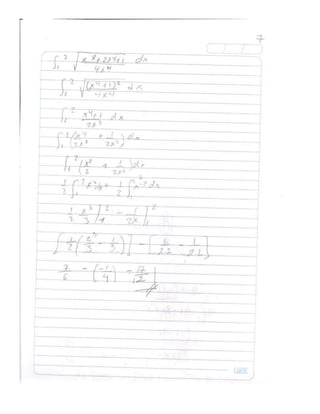 7
∫₁² √(x⁸+2x⁴+1 / 4x⁴) dx
∫₁² √((x⁴+1)² / 4x⁴) dx
∫₁² x⁴+1 / 2x² dx
∫₁² (x⁴/2x² + 1/2x²) dx
∫₁² (x²/2 + 1/2x²) dx
1/2 ∫₁² x² dx + 1/2 ∫₁² x⁻² dx
1/2 x³/3 |₁² - 1/2x |₁²
[1/2 (2³/3 - 1/3)] - [1/2.2 - 1/2.1]
7/6 - (-1/4) = 17/12